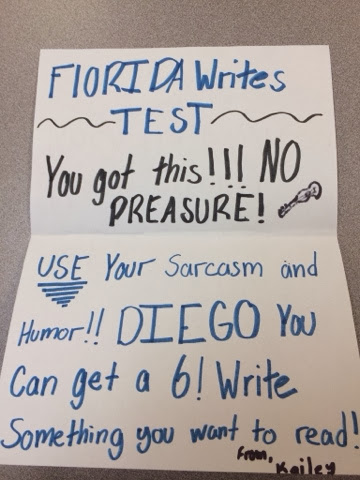 FlORIDA Writes
TEST
You got this!!! NO
PREASURE!
USE Your Sarcasm and
Humor!! DIEGO You
Can get a 6! Write
Something you want to read!
From,
Kailey